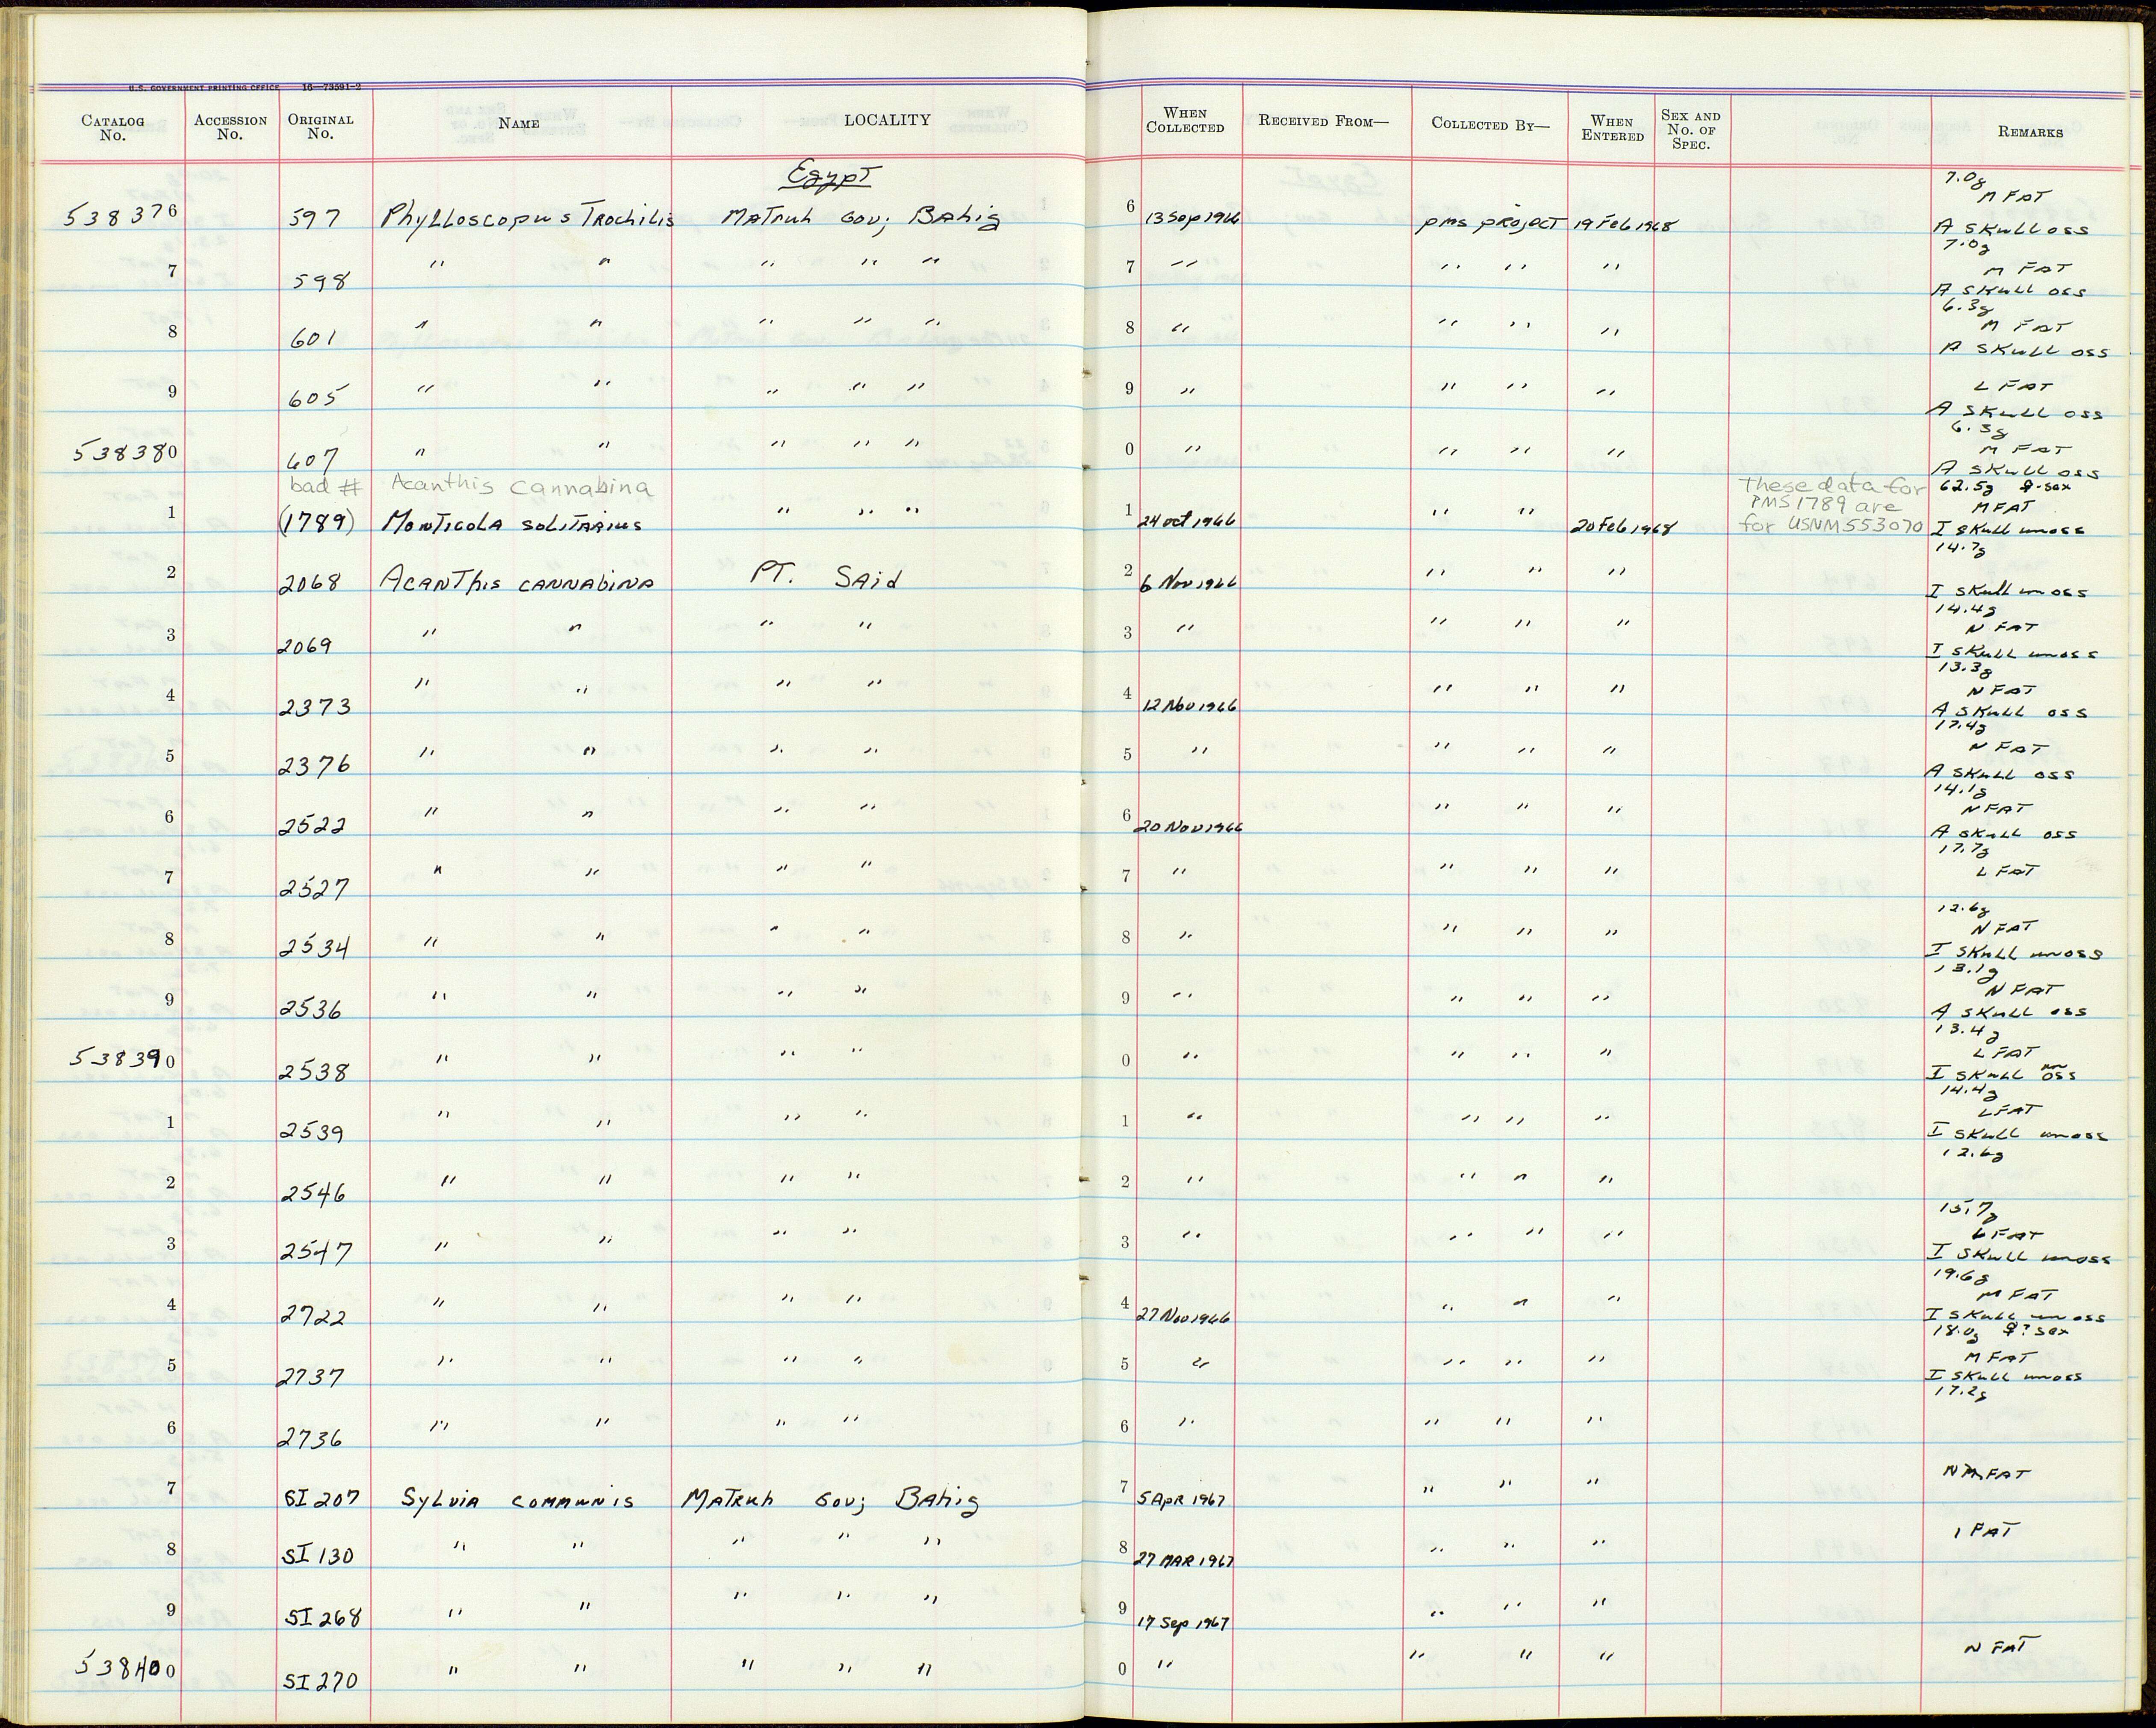 U.S. GOVERNMENT PRINTING OFFICE 16—73591-2
CATALOG No. ACCESSION No. ORIGINAL No. NAME LOCALITY WHEN COLLECTED RECEIVED FROM— COLLECTED BY— WHEN ENTERED SEX AND No. OF SPEC. REMARKS
Egypt
7.0g
M FAT
538376 597 Phylloscopus Trochilis Matruh Gov; Bahig 6 13 Sep 1966 PMS PROJECT 19 Feb 1968 A Skull oss
7.0g
7 598 " " " " " 7 " " " " M FAT
A Skull oss
6.3g
8 601 " " " " " 8 " " " " M FAT
A Skull oss
9 605 " " " " " 9 " " " " L FAT
A Skull oss
6.3g
538380 607 " " " " " 0 " " " " M FAT
A Skull oss
bad # Acanthis cannabina These data for 62.5g ♀-sex
PMS 1789 are M FAT
1 (1789) Monticola solitarius " " " 1 24 Oct 1966 " " 20 Feb 1968 for USNM 553070 I Skull unoss
14.7g
2 2068 Acanthis cannabina PT. Said 2 6 Nov 1966 " " "
I Skull unoss
14.4g
3 2069 " " " " 3 " " " " N FAT
I Skull unoss
13.3g
4 2373 " " " " 4 12 Nov 1966 " " " N FAT
A Skull oss
17.4g
5 2376 " " " " 5 " " " " N FAT
A Skull oss
14.1g
6 2522 " " " " 6 20 Nov 1966 " " " N FAT
A Skull oss
17.7g
7 2527 " " " " 7 " " " " L FAT
12.6g
8 2534 " " " " 8 " " " " N FAT
I Skull unoss
13.1g
9 2536 " " " " 9 " " " " N FAT
A Skull oss
13.4g
538390 2538 " " " " 0 " " " " L FAT
I Skull unoss
14.4g
1 2539 " " " " 1 " " " " L FAT
I Skull unoss
12.6g
2 2546 " " " " 2 " " " "
15.7g
3 2547 " " " " 3 " " " " L FAT
I Skull unoss
19.6g
4 2722 " " " " 4 27 Nov 1966 " " " M FAT
I Skull unoss
18.0g ♀? sex
5 2737 " " " " 5 " " " " M FAT
I Skull unoss
17.2g
6 2736 " " " " 6 " " " "
7 SI 207 Sylvia communis Matruh Gov; Bahig 7 5 Apr 1967 " " " FAT
8 SI 130 " " " " " 8 27 MAR 1967 " " " FAT
9 SI 268 " " " " " 9 17 Sep 1967 " " "
538400 SI 270 " " " " " 0 " " " " N FAT